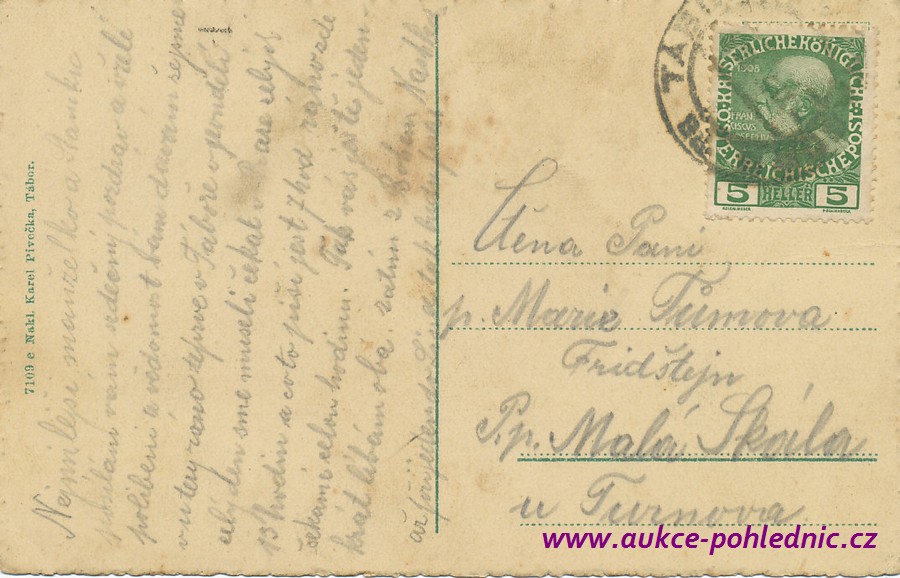 Nejmilejší manželko a Slaniku
posílam vam srdečni pozdrav a vřelé
polibeni a vědomost vam davam sejme
v uterý rano teprve v Táboře v pondělí
celý den sme museli čekat v Praze celych
13 hodin a co to piši jest 7 hod ráno zde
čekáme celou hodinu. Tak vas ješte jeden
krat libám oba zatim z Bohem Vashle
až přijedem do
7109 e Nakl. Karel Pivečka, Tábor.
TÁBOR
KAISERLICHE KÖNIGLICHE
ÖSTERREICHISCHE POST
1908
FRAN
CISCVS
IOSEPHVS
5 HELLER 5
Ctěna Pani
p. Marie Tůmova
Fridštejn
P.p. Malá Skála
u Turnova
www.aukce-pohlednic.cz